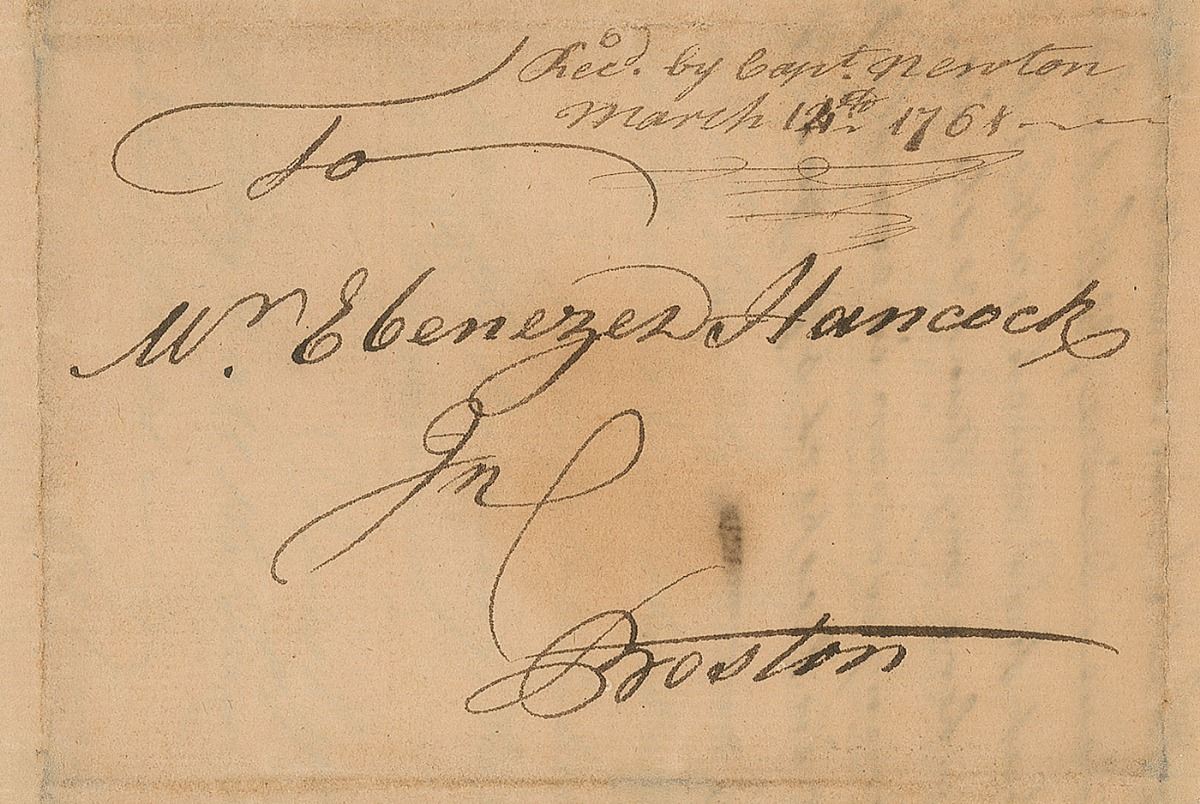 Recd. by Capt. Newton
March 12th 1761
To
Mr. Ebenezer Hancock
In
Boston